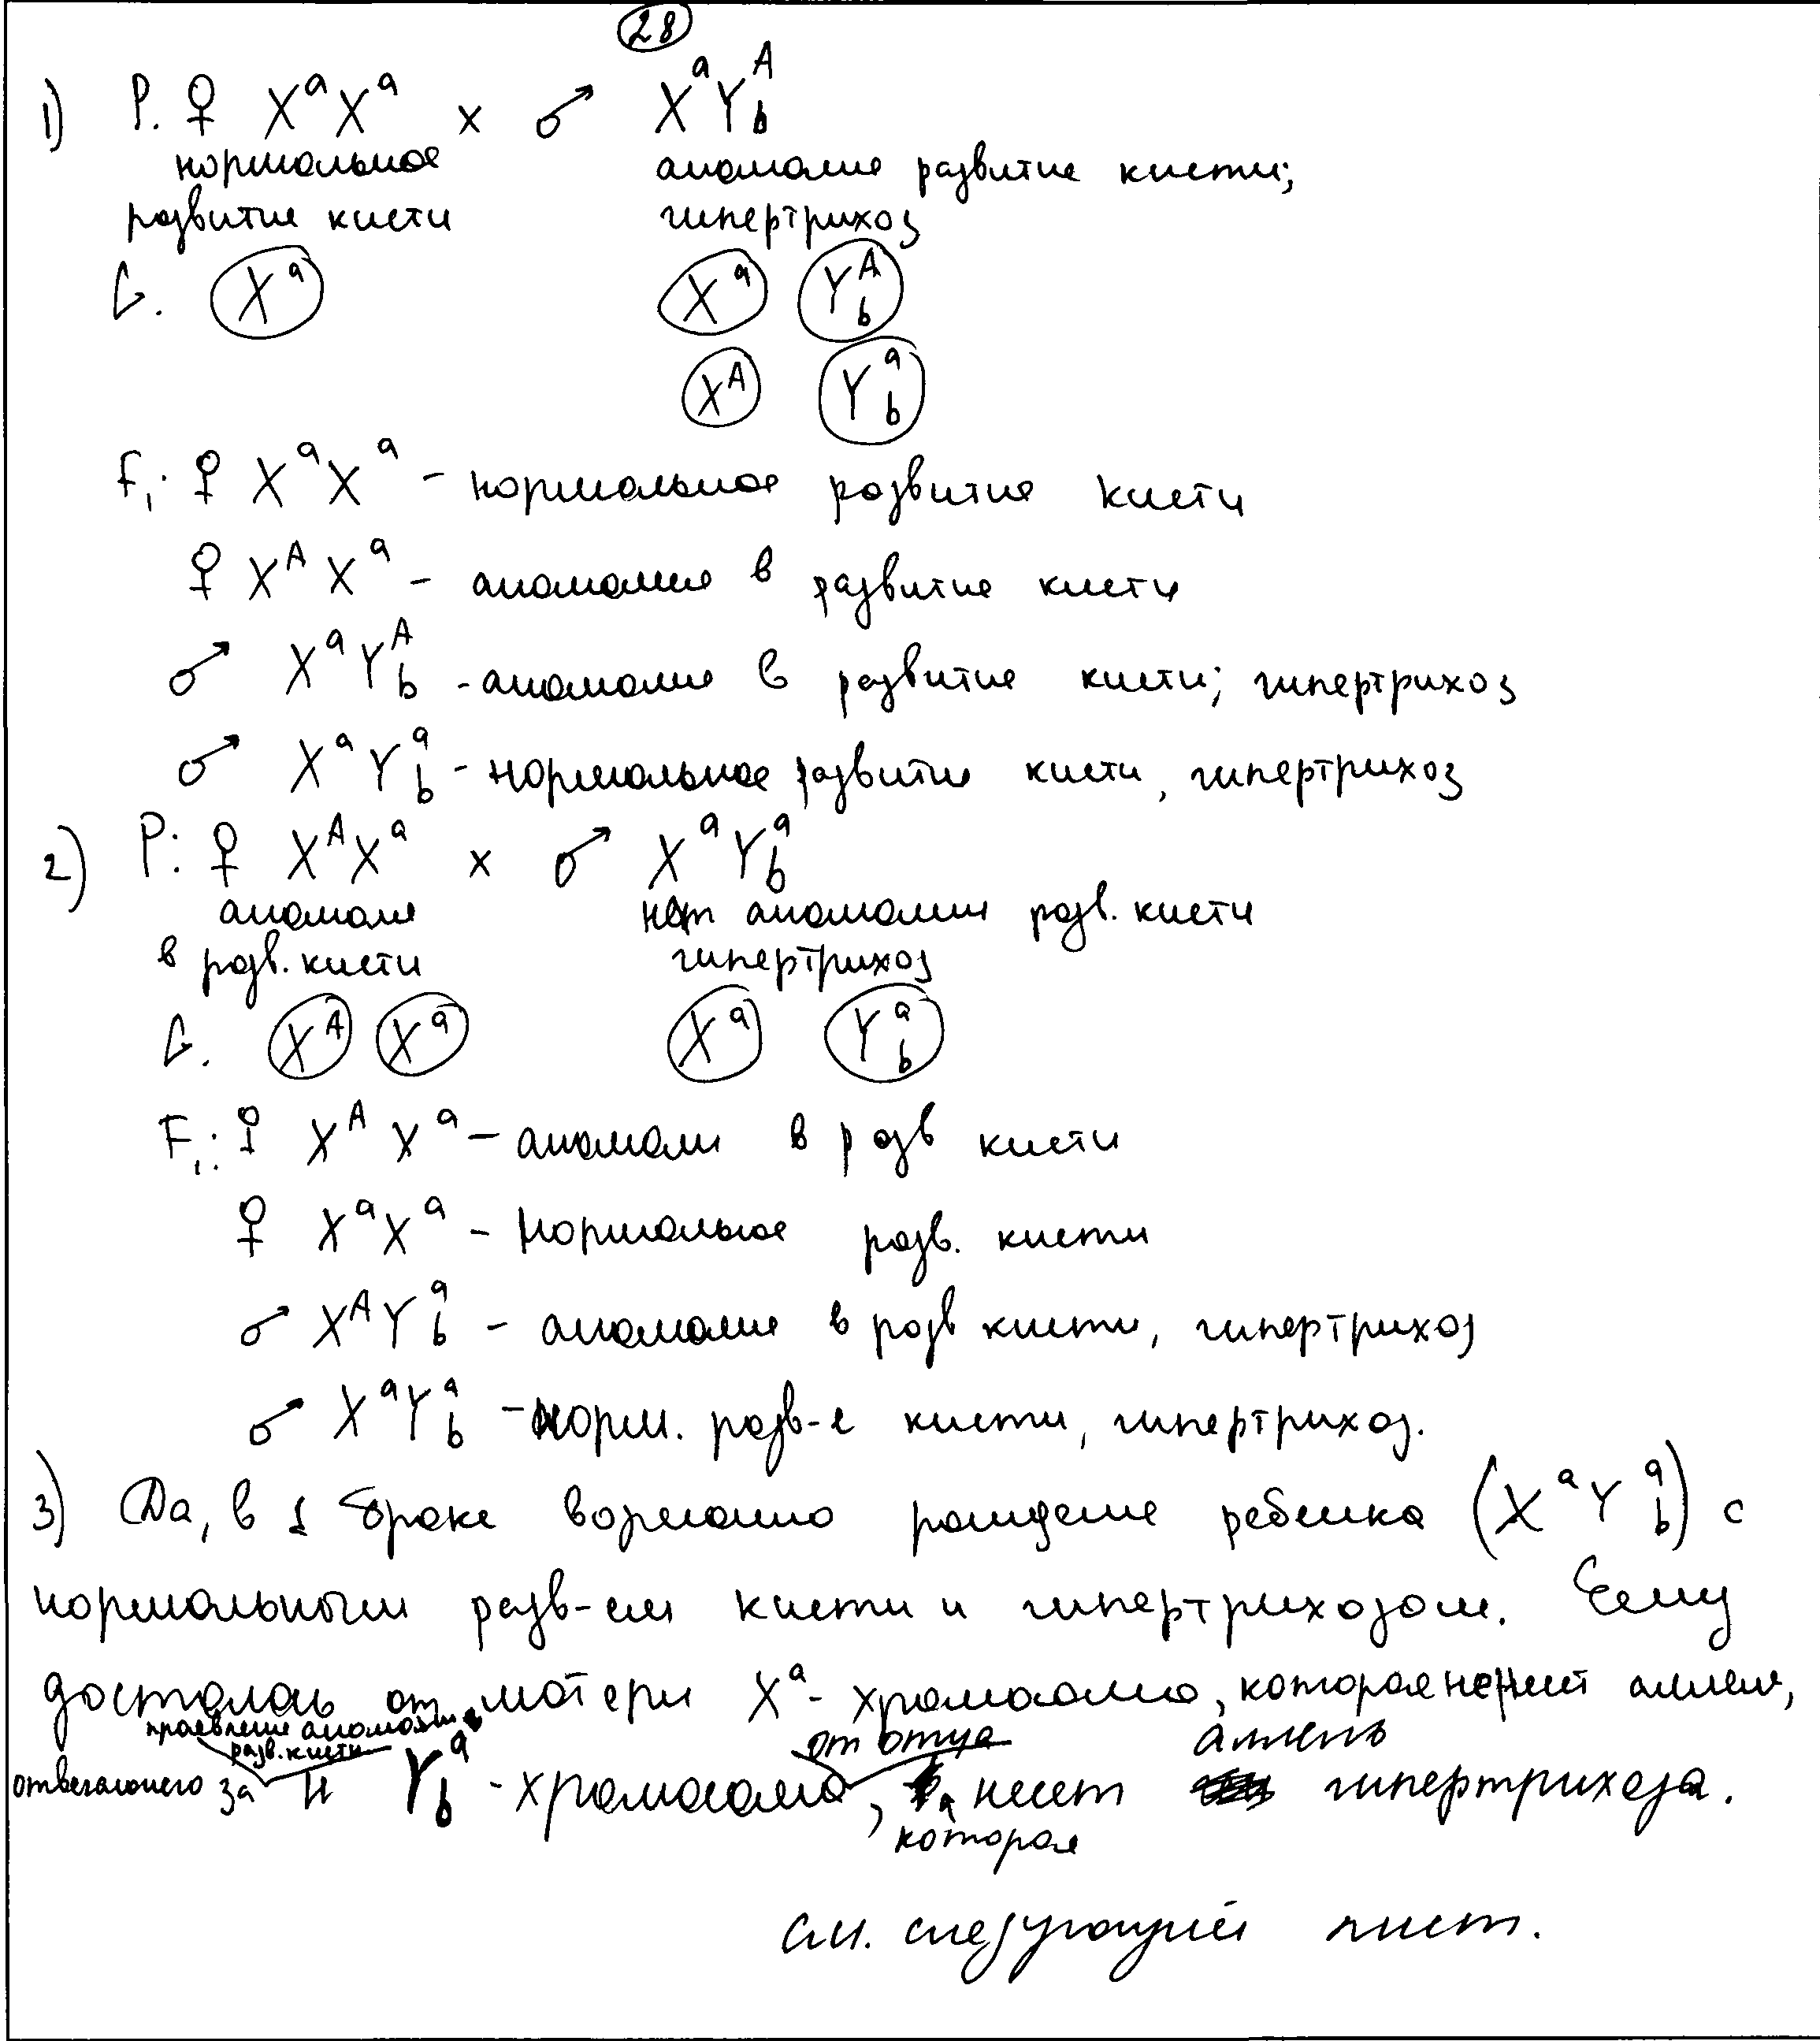 28
1) P. ♀ XᵃXᵃ x ♂ XᵃYᴬb
нормальное аномалие развитие кисти;
развитие кисти гипертрихоз
G. Xᵃ Xᵃ Yᴬb
Xᴬ Yᵃb
F₁. ♀ XᵃXᵃ - нормальное развитие кисти
♀ XᴬXᵃ - аномалие в развитие кисти
♂ XᵃYᴬb - аномалие в развитие кисти; гипертрихоз
♂ XᵃYᵃb - нормальное развитие кисти, гипертрихоз
2) P: ♀ XᴬXᵃ x ♂ XᵃYᵃb
аномалия нет аномалии разв. кисти
в разв. кисти гипертрихоз
G. Xᴬ Xᵃ Xᵃ Yᵃb
F₁: ♀ XᴬXᵃ - аномали в разв кисти
♀ XᵃXᵃ - Нормальное разв. кисти
♂ XᴬYᵃb - аномалие в разв кисти, гипертрихоз
♂ XᵃYᵃb - норм. разв-е кисти, гипертрихоз.
3) Да, в 1 браке возможно рождение ребенка (XᵃYᵃb) с
нормальным разв-ем кисти и гипертрихозом. Ему
досталась от матери Xᵃ- хромосома, которая несет аллель,
отвечающего за проевление аномалии разв. кисти и Yᵃb - хромосома от отца, которая несет аллель гипертрихоза.
см. следующий лист.